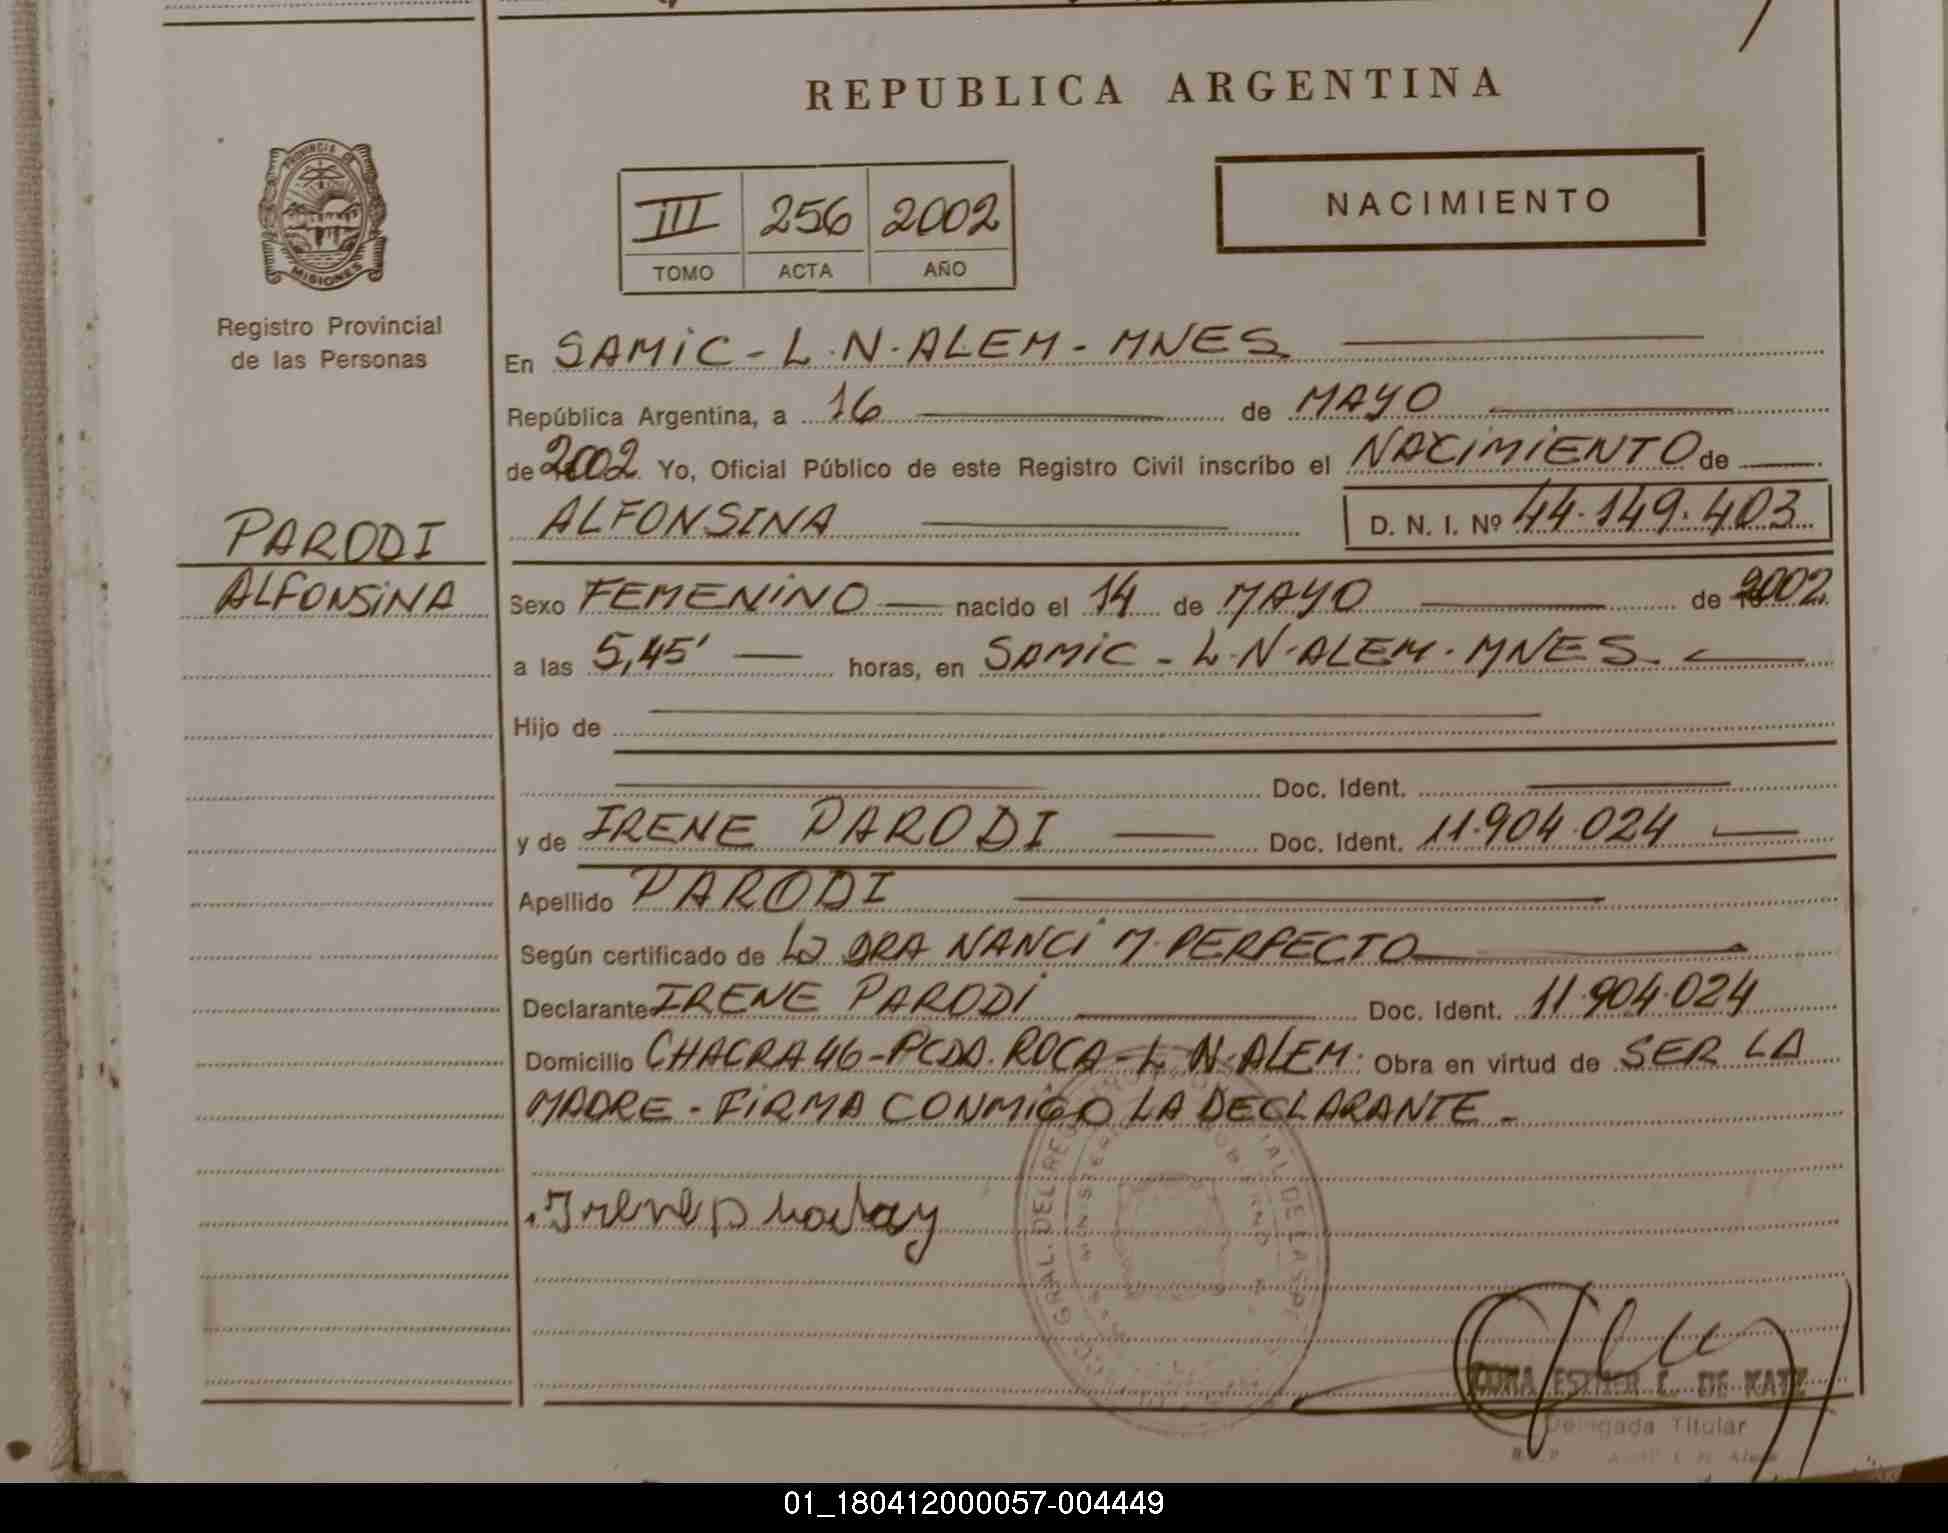 REPUBLICA ARGENTINA
PROVINCIA DE
MISIONES
Registro Provincial
de las Personas
III 256 2002
TOMO ACTA AÑO
NACIMIENTO
En SAMIC - L.N. ALEM - MNES
República Argentina, a 16 de MAYO
de 2002 Yo, Oficial Público de este Registro Civil inscribo el NACIMIENTO de
ALFONSINA D. N. I. Nº 44.149.403
PARODI
ALFONSINA
Sexo FEMENINO nacido el 14 de MAYO de 2002
a las 5,45' horas, en SAMIC - L.N. ALEM - MNES
Hijo de
Doc. Ident.
y de IRENE PARODI Doc. Ident. 11.904.024
Apellido PARODI
Según certificado de LA DRA NANCI M. PERFECTO
Declarante IRENE PARODI Doc. Ident. 11.904.024
Domicilio CHACRA 46 - PCDA. ROCA - L.N. ALEM. Obra en virtud de SER LA
MADRE - FIRMA CONMIGO LA DECLARANTE -
ESTHER L. DE KATZ
Delegada Titular
01_180412000057-004449